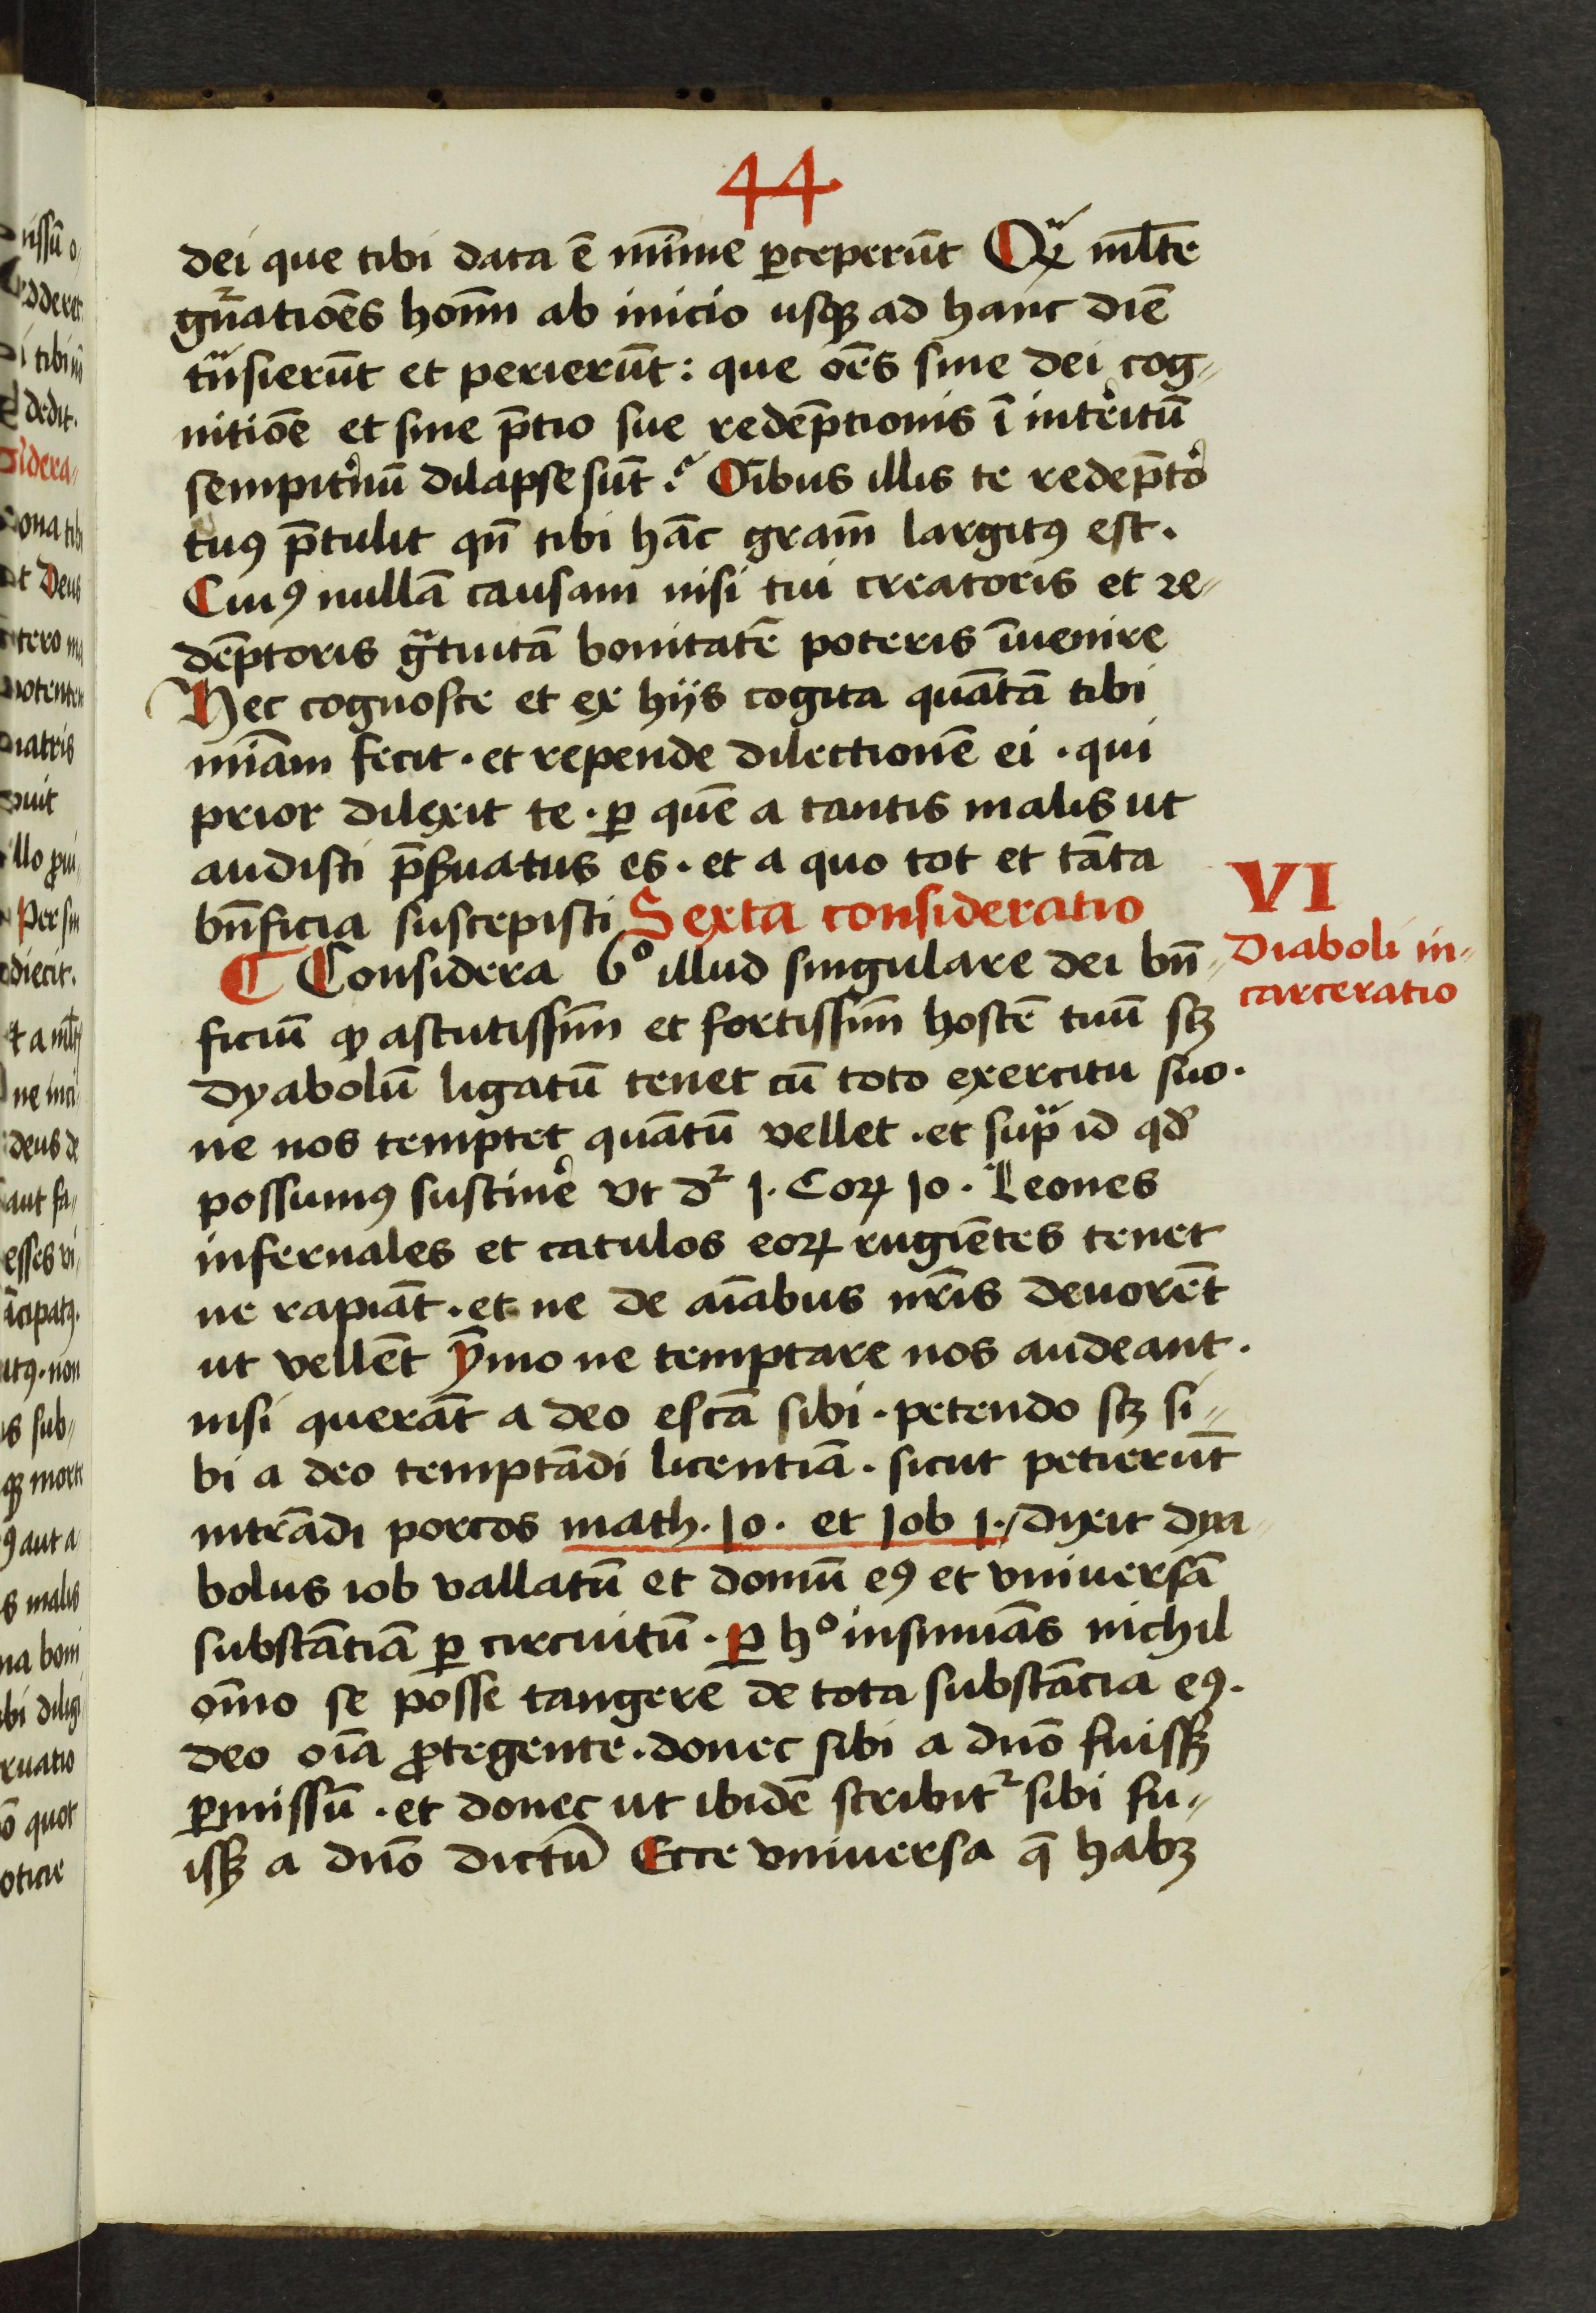 44
dei que tibi data ē mīme ꝑceperūt Qͣꝫ ml̄te
gn̄ationēs hoīm ab inicio usqꝫ ad hanc diē
tͣnsierūt et perierūt: que oēs sine dei cog-
nitiōe et sine p̄tio sue redēptionis ī interitū
sempitͤnū dilapse sūt. Oībus illis te redēptoͬ
tuꝰ p̄tulit qn̄ tibi hāc gram̄ largitꝰ est.
Cuiꝰ nullā causam nisi tui creatoris et re-
dēptoris gͣtuitā bonitatē poteris īuenire
Hec cognosce et ex hijs cogita quātā tibi
miām fecit. et repende dilectionē ei. qui
prior dilexit te. ꝑ quē a tantis malis ut
audisti p̄ẜuatus es. et a quo tot et tāta
bn̄ficia suscepisti Sexta consideratio
VI
Diaboli in-
carceratio
Considera 6º illud singulare dei bn̄-
ficiū ꝙ astutissīm et fortissīm hostē tuū scꝫ
dyabolū ligatū tenet cū toto exercitu suo.
ne nos temptet quātū vellet. et supͣ id qđ
possumꝰ sustinēͬ vt dꝛ 1. Coꝝ 10. Leones
infernales et catulos eoꝝ rugiētes tenet
ne rapiāt. et ne de aīabus nr̄is deuorēt
ut vellēt ȳmo ne temptare nos audeant.
nisi querāt a deo escā sibi. petendo scꝫ si-
bi a deo temptādi licentiā. sicut petierūt
intrādi porcos math. 10. et Job 1. dixit dya-
bolus iob vallatū et domū eꝰ et vniuersā
substātiā ꝑ circuitū. ꝑ hº insinuās nichil
oīno se posse tangere de tota substācia eꝰ.
deo oīa ꝓtegente. donec sibi a dnō fuissꝫ
ꝑmissū. et donec ut ibidē scribitꝛ sibi fu-
issꝫ a dnō dictū Ecce vniuersa q̄ habꝫ